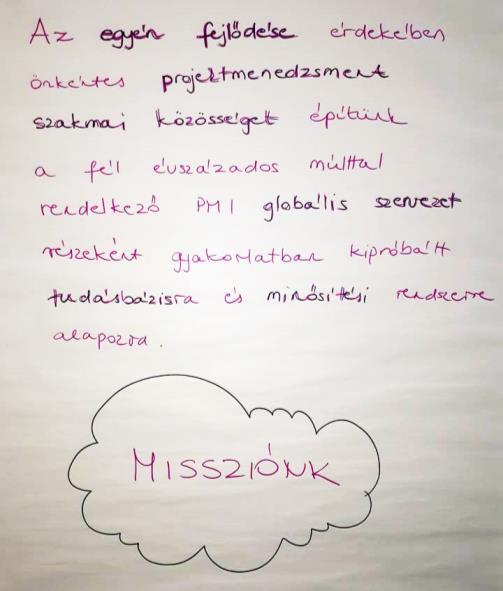 Az egyén fejlődése érdekében
önkéntes projektmenedzsment
szakmai közösséget építünk
a fél évszázados múlttal
rendelkező PMI globális szervezet
részeként gyakorlatban kipróbált
tudásbázisra és minősítési rendszerre
alapozva.
MISSZIÓNK